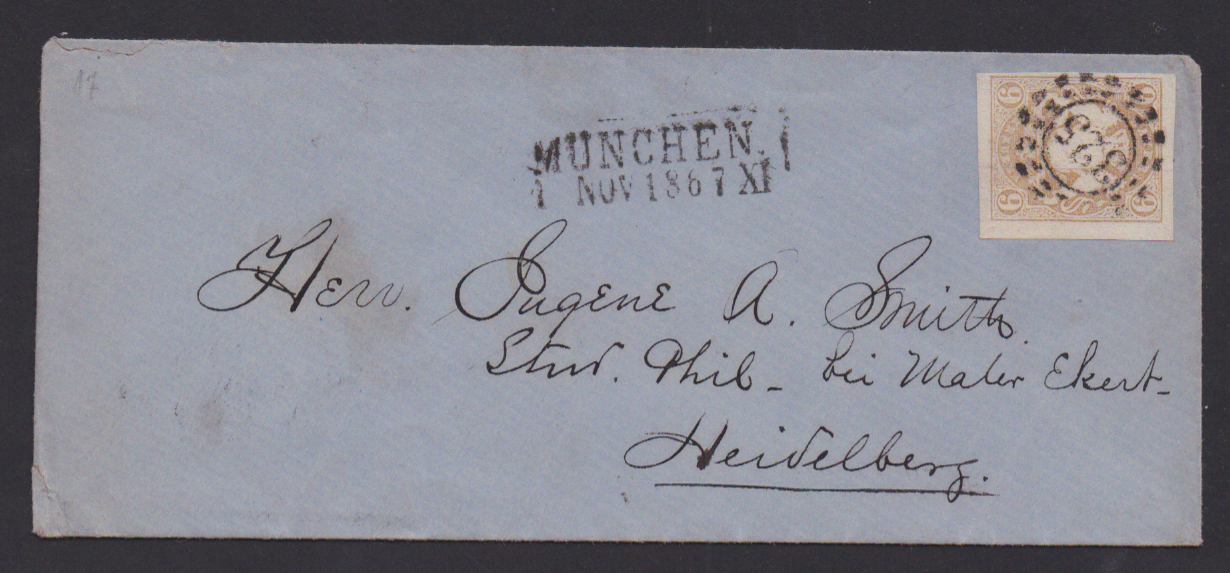 17
MÜNCHEN.
1 NOV 1867 XI
6 6
325
6 6
Herr. Eugene A. Smith.
Stud. Phil - bei Maler Ekert -
Heidelberg.